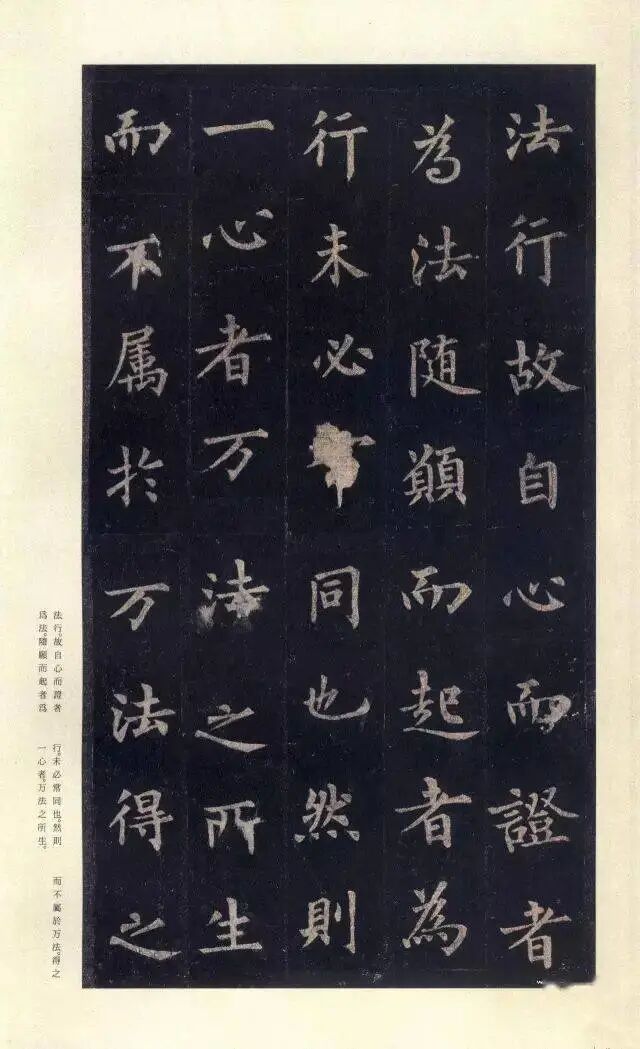 法行故自心而證者
為法随願而起者為
行未必同也然則
一心者万法之所生
而不属於万法得之
法行。故自心而證者
爲法。隨願而起者爲
行。未必常同也。然則
一心者。万法之所生。
而不屬於万法。得之